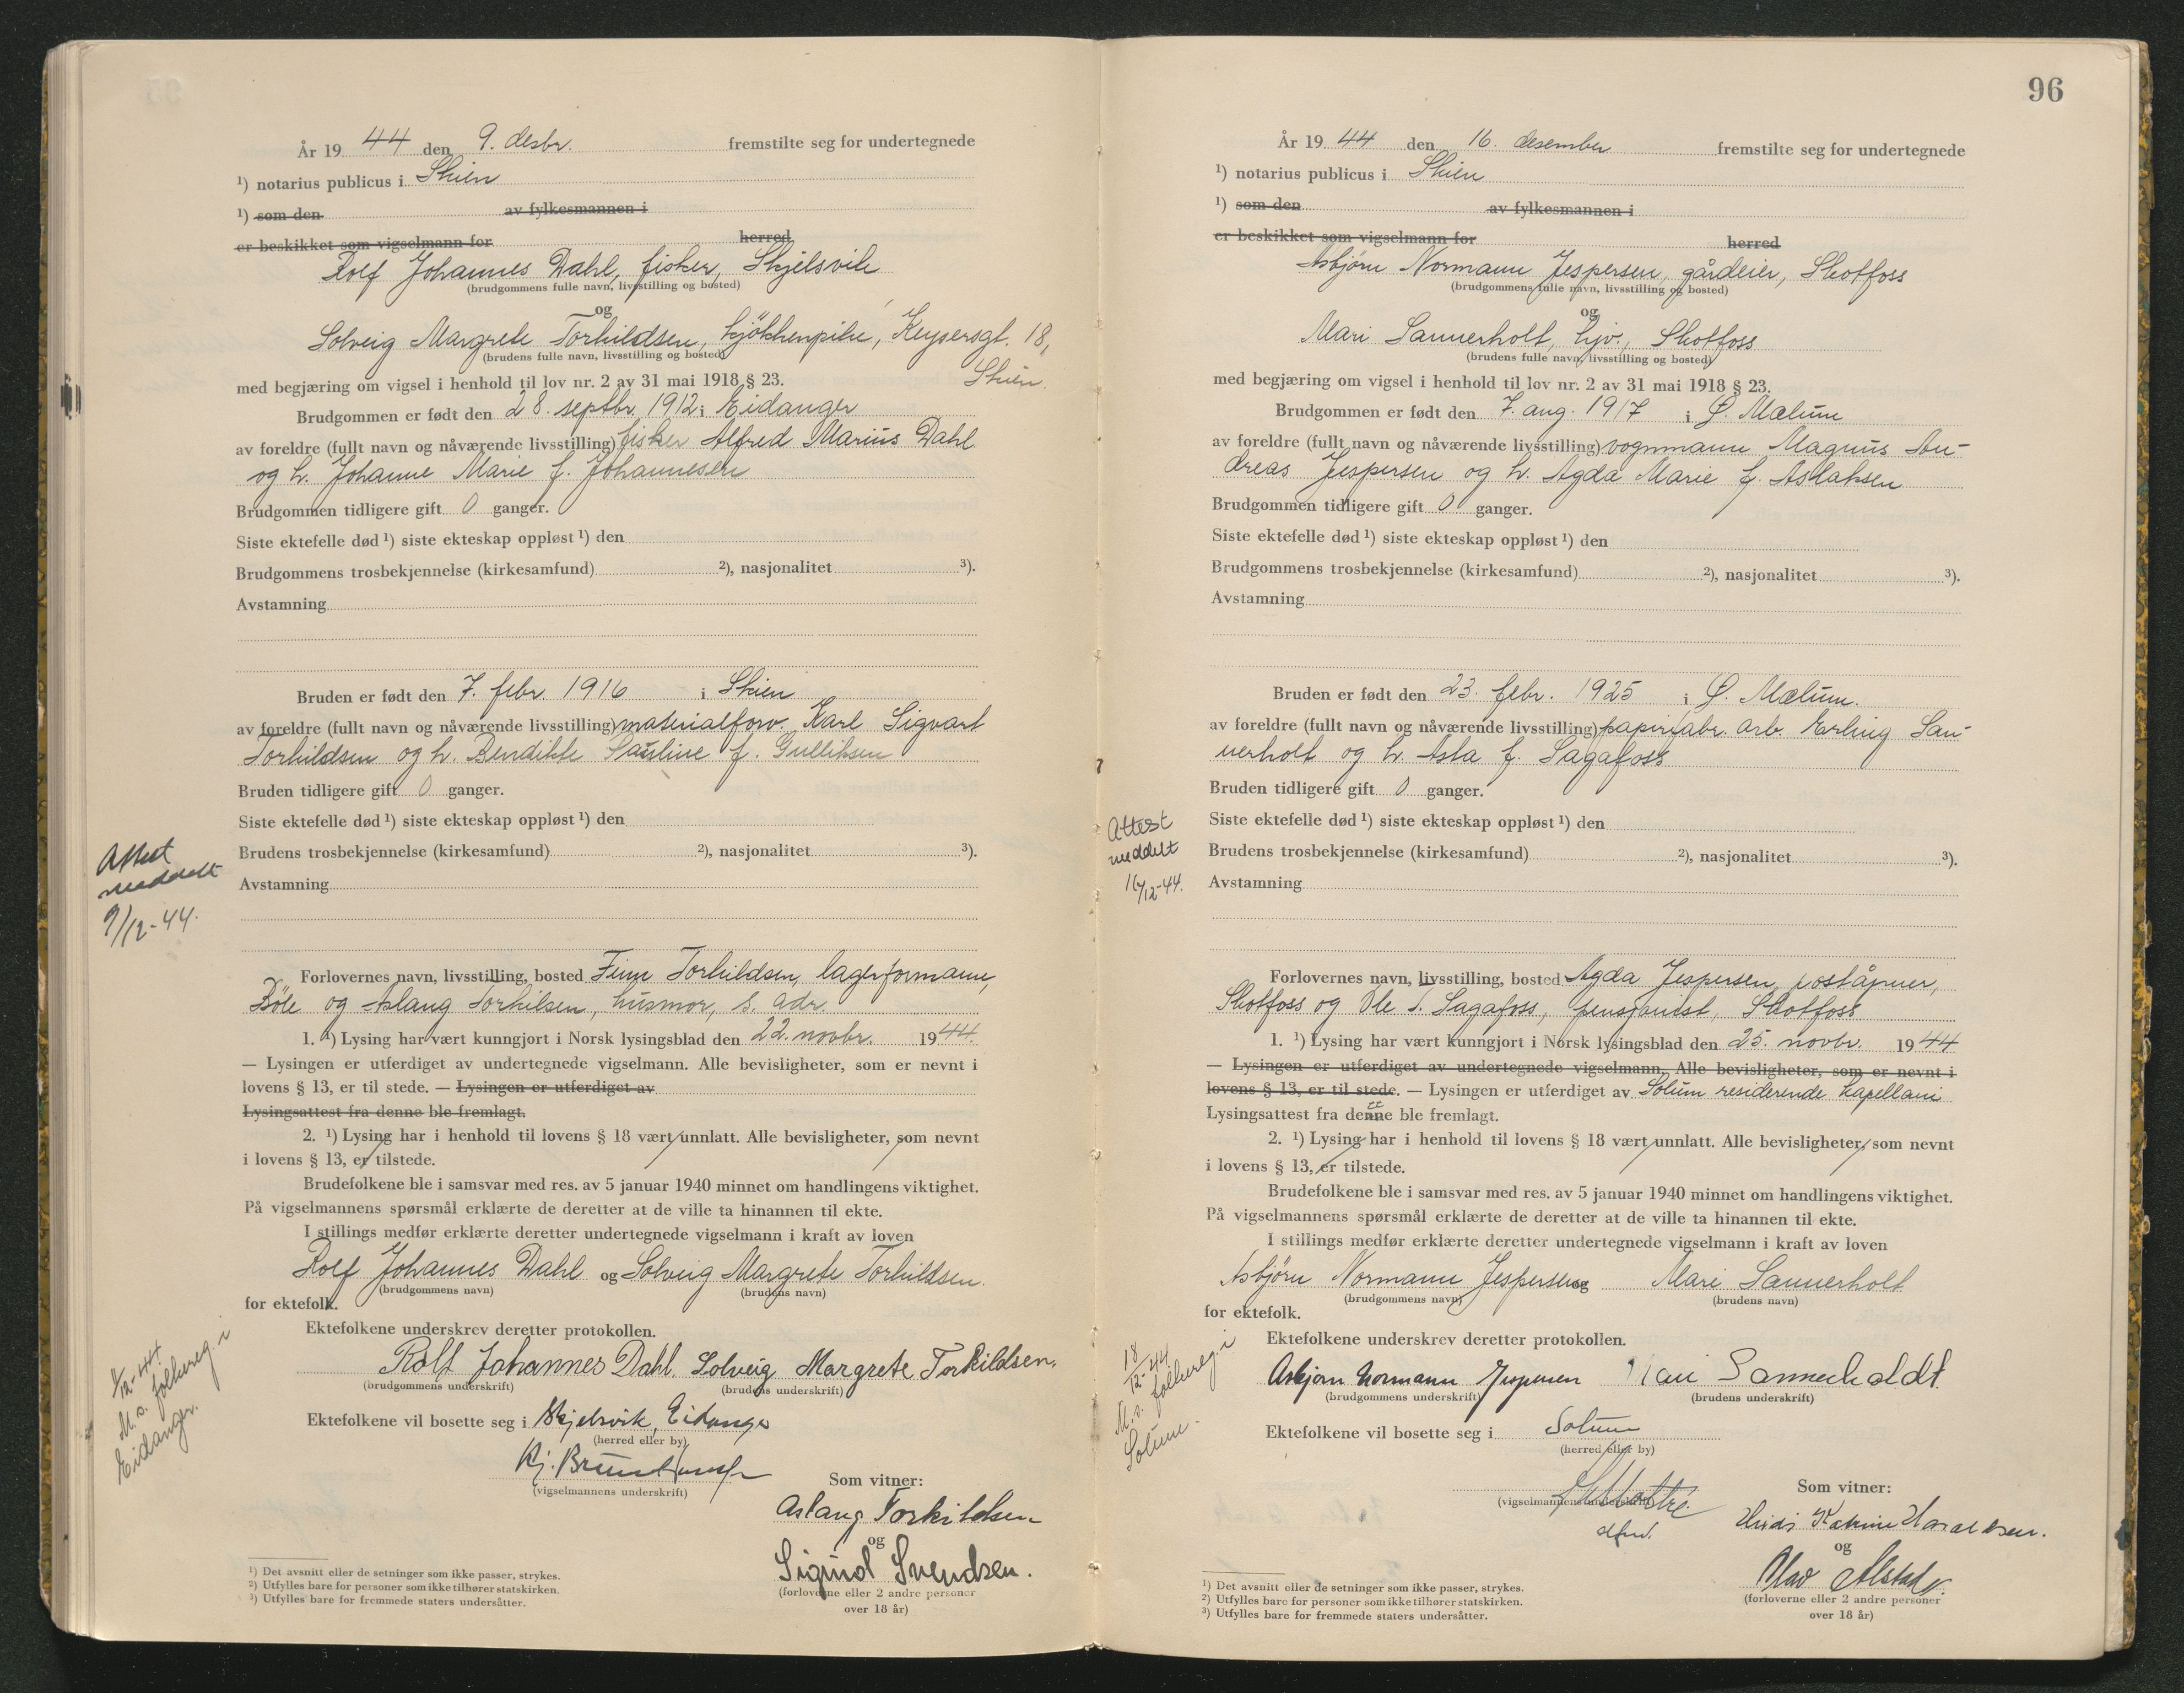 År 19 44 den 9. desbr. fremstilte seg for undertegnede
¹) notarius publicus i Skien
¹) som den av fylkesmannen i
er beskikket som vigselmann for herred
Rolf Johannes Dahl, fisker, Skjelsvik
(brudgommens fulle navn, livsstilling og bosted)
og
Solveig Margrete Torkildsen, kjökkenpike, Keysersgt. 18,
(brudens fulle navn, livsstilling og bosted)
Skien.
med begjæring om vigsel i henhold til lov nr. 2 av 31 mai 1918 § 23.
Brudgommen er født den 28. septbr. 1912 i Eidanger
av foreldre (fullt navn og nåværende livsstilling) fisker Alfred Marius Dahl
og h. Johanne Marie f. Johannesen
Brudgommen tidligere gift 0 ganger.
Siste ektefelle død ¹) siste ekteskap oppløst ¹) den
Brudgommens trosbekjennelse (kirkesamfund) ²), nasjonalitet ³).
Avstamning
Bruden er født den 7. febr. 1916 i Skien
av foreldre (fullt navn og nåværende livsstilling) materialforv. Karl Sigvart
Torkildsen og h. Bendikte Pauline f. Gulliksen
Bruden tidligere gift 0 ganger.
Siste ektefelle død ¹) siste ekteskap oppløst ¹) den
Brudens trosbekjennelse (kirkesamfund) ²), nasjonalitet ³).
Avstamning
Attest
meddelt
9/12-44.
Forlovernes navn, livsstilling, bosted Finn Torkildsen, lagerformann,
Böle og Aslaug Torkilsen, husmor, s. adr.
1. ¹) Lysing har vært kunngjort i Norsk lysingsblad den 22. novbr. 1944.
— Lysingen er utferdiget av undertegnede vigselmann. Alle bevisligheter, som er nevnt i
lovens § 13, er til stede. — Lysingen er utferdiget av
Lysingsattest fra denne ble fremlagt.
2. ¹) Lysing har i henhold til lovens § 18 vært unnlatt. Alle bevisligheter, som nevnt
i lovens § 13, er tilstede.
Brudefolkene ble i samsvar med res. av 5 januar 1940 minnet om handlingens viktighet.
På vigselmannens spørsmål erklærte de deretter at de ville ta hinannen til ekte.
I stillings medfør erklærte deretter undertegnede vigselmann i kraft av loven
Rolf Johannes Dahl og Solveig Margrete Torkildsen.
(brudgommens navn) (brudens navn)
for ektefolk.
Ektefolkene underskrev deretter protokollen.
Rolf Johannes Dahl. Solveig Margrete Torkildsen.
(brudgommens underskrift) (brudens underskrift)
12-44
M. s. folkereg. i
Eidanger.
Ektefolkene vil bosette seg i Skjelsvik, Eidanger
(herred eller by)
(vigselmannens underskrift)
Som vitner:
Aslaug Torkildsen
og
Sigurd Svendsen.
(forloverne eller 2 andre personer
over 18 år)
¹) Det avsnitt eller de setninger som ikke passer, strykes.
²) Utfylles bare for personer som ikke tilhører statskirken.
³) Utfylles bare for fremmede staters undersåtter.
96
År 19 44 den 16. desember fremstilte seg for undertegnede
¹) notarius publicus i Skien
¹) som den av fylkesmannen i
er beskikket som vigselmann for herred
Asbjörn Normann Jespersen, gårdeier, Skotfoss
(brudgommens fulle navn, livsstilling og bosted)
og
Mari Sannerholt, hjv., Skotfoss
(brudens fulle navn, livsstilling og bosted)
med begjæring om vigsel i henhold til lov nr. 2 av 31 mai 1918 § 23.
Brudgommen er født den 7. aug. 1917 i Ø. Mælum
av foreldre (fullt navn og nåværende livsstilling) vognmann Magnus An-
dreas Jespersen og h. Agda Marie f. Aslaksen
Brudgommen tidligere gift 0 ganger.
Siste ektefelle død ¹) siste ekteskap oppløst ¹) den
Brudgommens trosbekjennelse (kirkesamfund) ²), nasjonalitet ³).
Avstamning
Bruden er født den 23. febr. 1925 i Ø. Mælum.
av foreldre (fullt navn og nåværende livsstilling) papirfabr. arb. Erling San-
nerholt og h. Asta f. Sagafoss
Bruden tidligere gift 0 ganger.
Siste ektefelle død ¹) siste ekteskap oppløst ¹) den
Brudens trosbekjennelse (kirkesamfund) ²), nasjonalitet ³).
Avstamning
Attest
meddelt
16/12-44.
Forlovernes navn, livsstilling, bosted Agda Jespersen, poståpner,
Skotfoss og Ole T. Sagafoss, pensjonist, Skotfoss
1. ¹) Lysing har vært kunngjort i Norsk lysingsblad den 25. novbr. 1944
— Lysingen er utferdiget av undertegnede vigselmann. Alle bevisligheter, som er nevnt i
lovens § 13, er til stede. — Lysingen er utferdiget av Solum residerende kapellani
Lysingsattest fra denne ble fremlagt.
2. ¹) Lysing har i henhold til lovens § 18 vært unnlatt. Alle bevisligheter, som nevnt
i lovens § 13, er tilstede.
Brudefolkene ble i samsvar med res. av 5 januar 1940 minnet om handlingens viktighet.
På vigselmannens spørsmål erklærte de deretter at de ville ta hinannen til ekte.
I stillings medfør erklærte deretter undertegnede vigselmann i kraft av loven
Asbjörn Normann Jespersen og Mari Sannerholt
(brudgommens navn) (brudens navn)
for ektefolk.
Ektefolkene underskrev deretter protokollen.
Asbjørn Normann Jespersen Mari Sannerholdt.
(brudgommens underskrift) (brudens underskrift)
18/12-44.
M. s. folkereg. i
Solum.
Ektefolkene vil bosette seg i Solum
(herred eller by)
(vigselmannens underskrift)
dfm.
Som vitner:
Katrine Haraldsen.
og
Olav Alstad.
(forloverne eller 2 andre personer
over 18 år)
¹) Det avsnitt eller de setninger som ikke passer, strykes.
²) Utfylles bare for personer som ikke tilhører statskirken.
³) Utfylles bare for fremmede staters undersåtter.